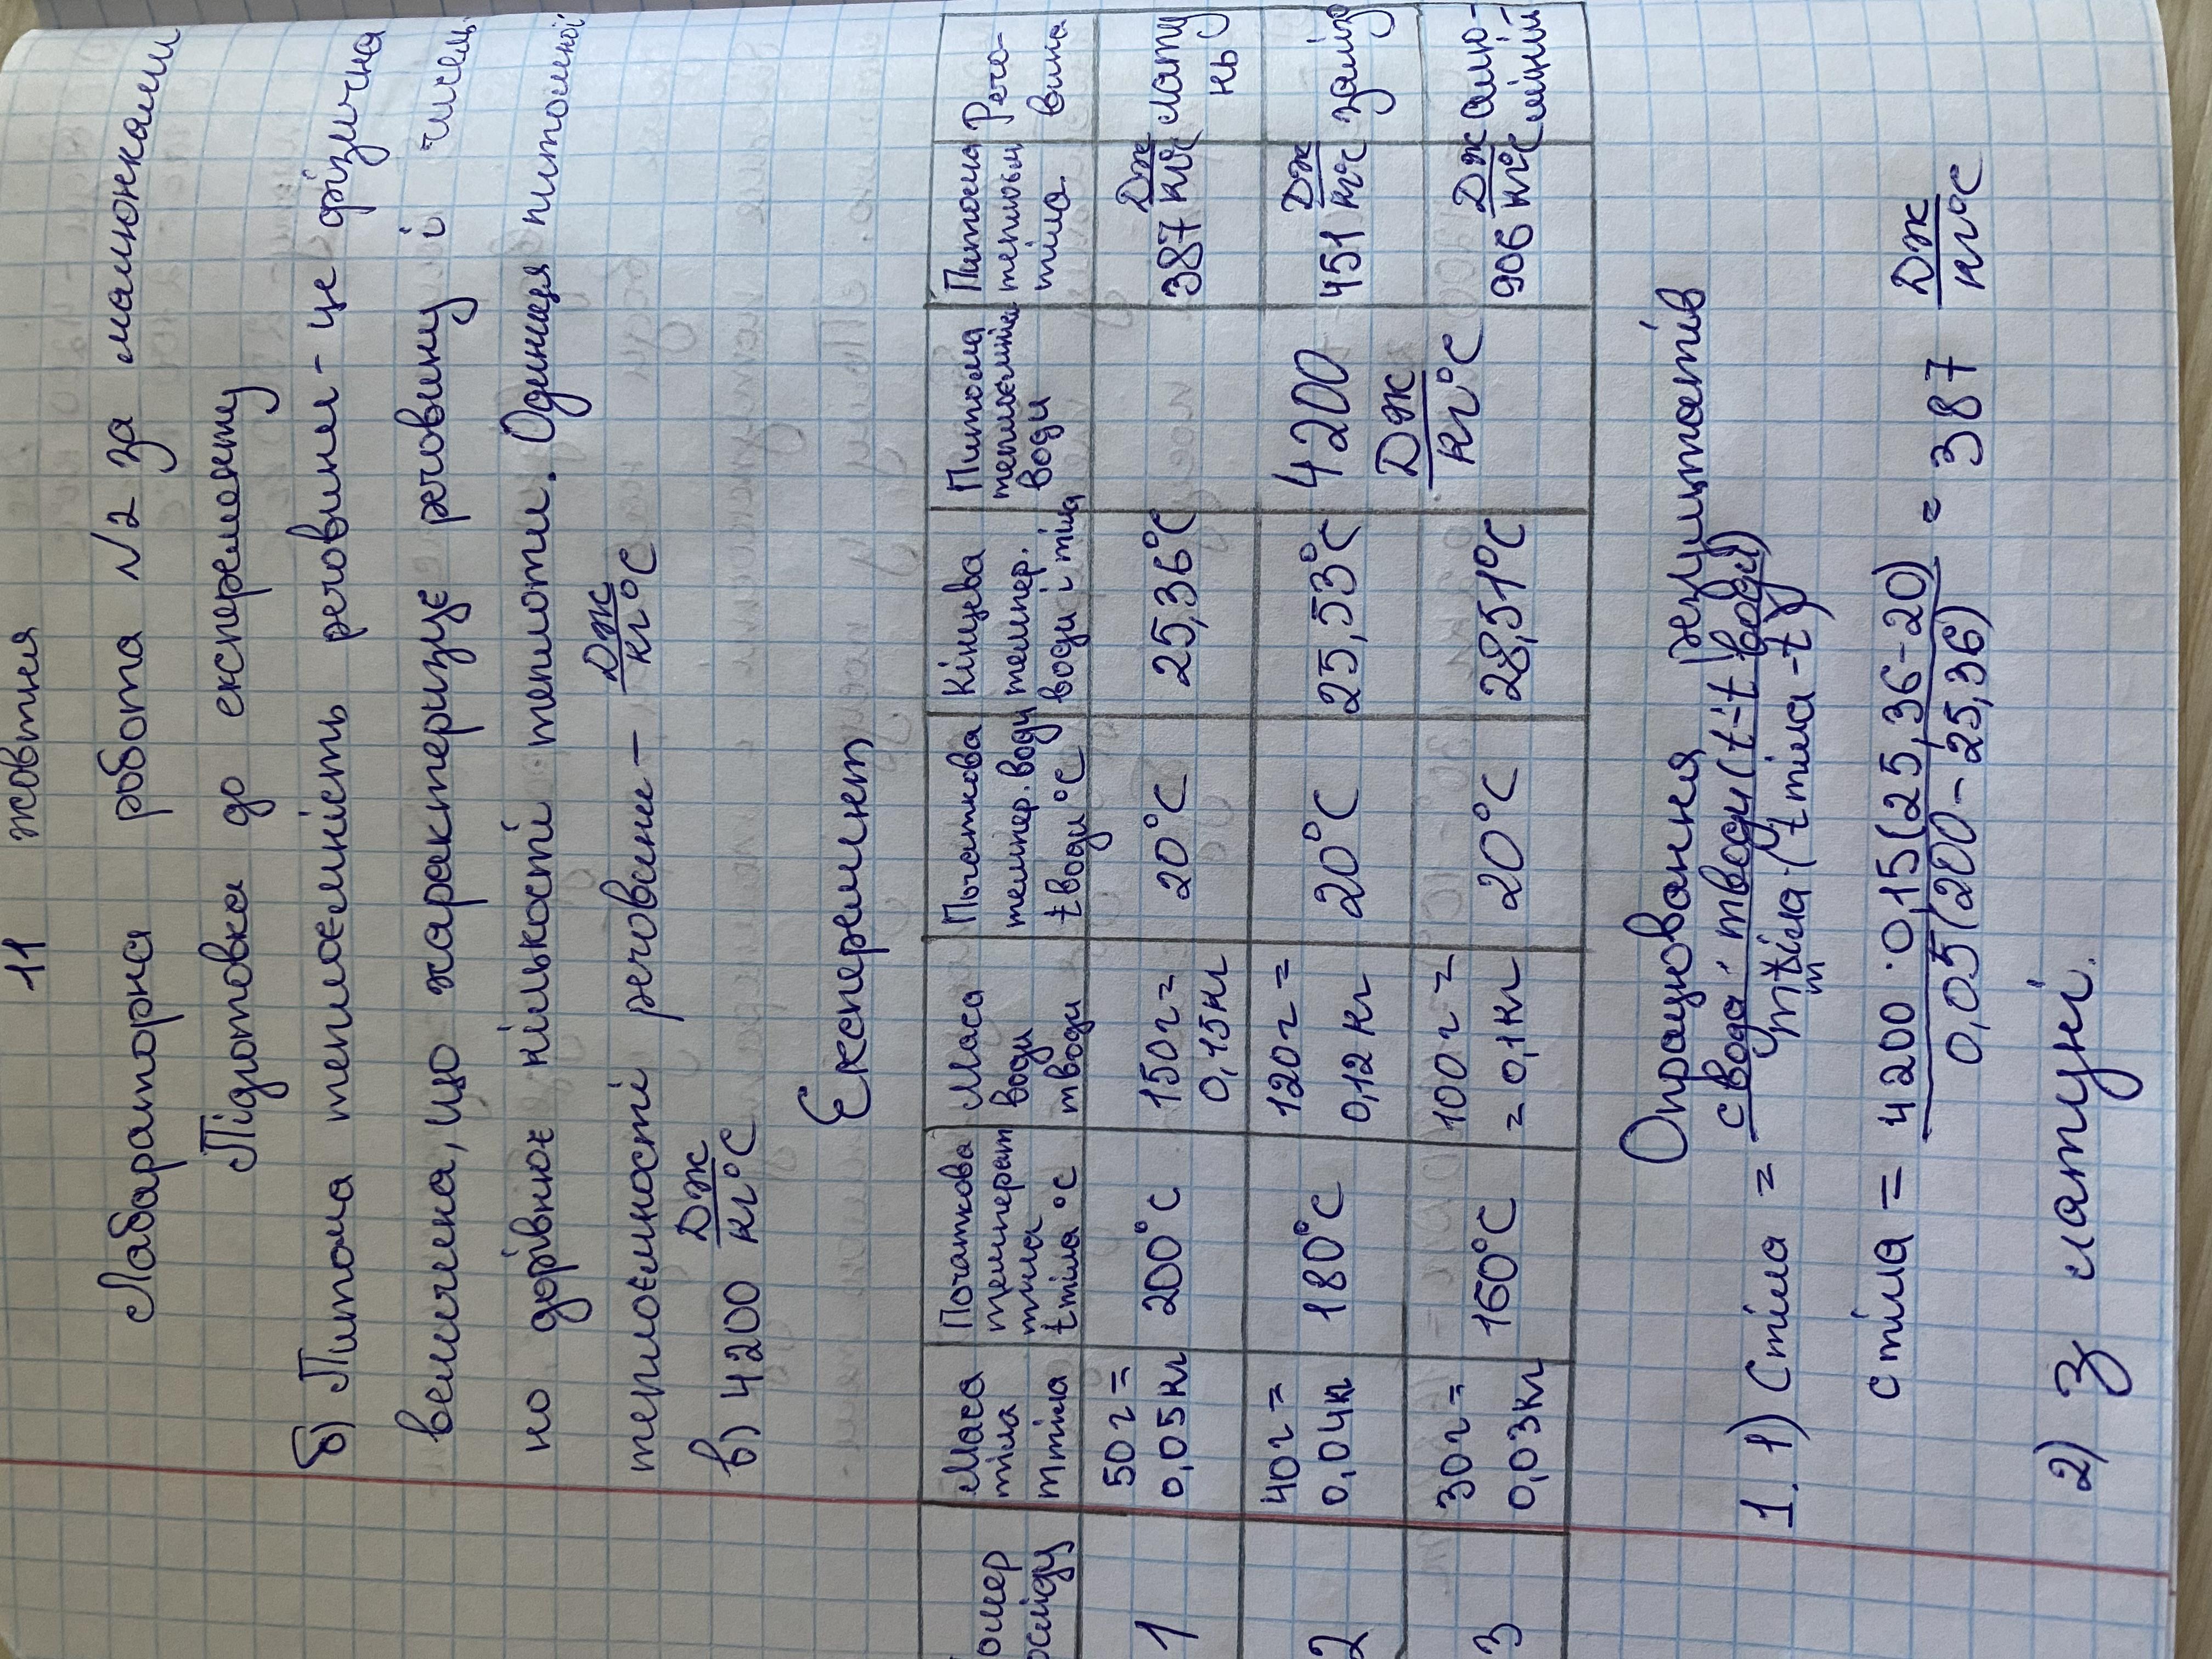 11 жовтня
Лабараторна робота №2 за малюнками
Підготовка до експеременту
б) Питома теплоємність речовини - це фізична
величина, що характеризує речовину і числен
но дорівнює кількості теплоти. Одиниця питомої
теплоємності речовини - Дж/кг°С
в) 4200 Дж/кг°С
Експеримент
омер осліду | Маса тіла mтіла | Початкова температ тіла tтіла °С | Маса води mводи | Пычаткова темпер. води tводи °С | Кінцева темпер. води і тіла | Питома теплоємніс води | Питома теплоєм тіла. | Речо-вина
1 | 50г = 0,05кг | 200°С | 150г = 0,15кг | 20°С | 25,36°С | 4200 Дж/кг°С | 387 Дж/кг°С | лату нь
2 | 40г = 0,04кг | 180°С | 120г = 0,12 кг | 20°С | 25,53°С | 451 Дж/кг°С | залізо
3 | 30г = 0,03кг | 160°С | 100г = = 0,1кг | 20°С | 28,51°С | 906 Дж/кг°С | алю-міній-
Опрацювання результатів
1. 1) Cтіла = cводи · mводи (t - t води) / mтіла · (t тіла - t)
cтіла = 4200 · 0,15(25,36-20) / 0,05(200-25,36) = 387 Дж/кг°С
2) З латуні.